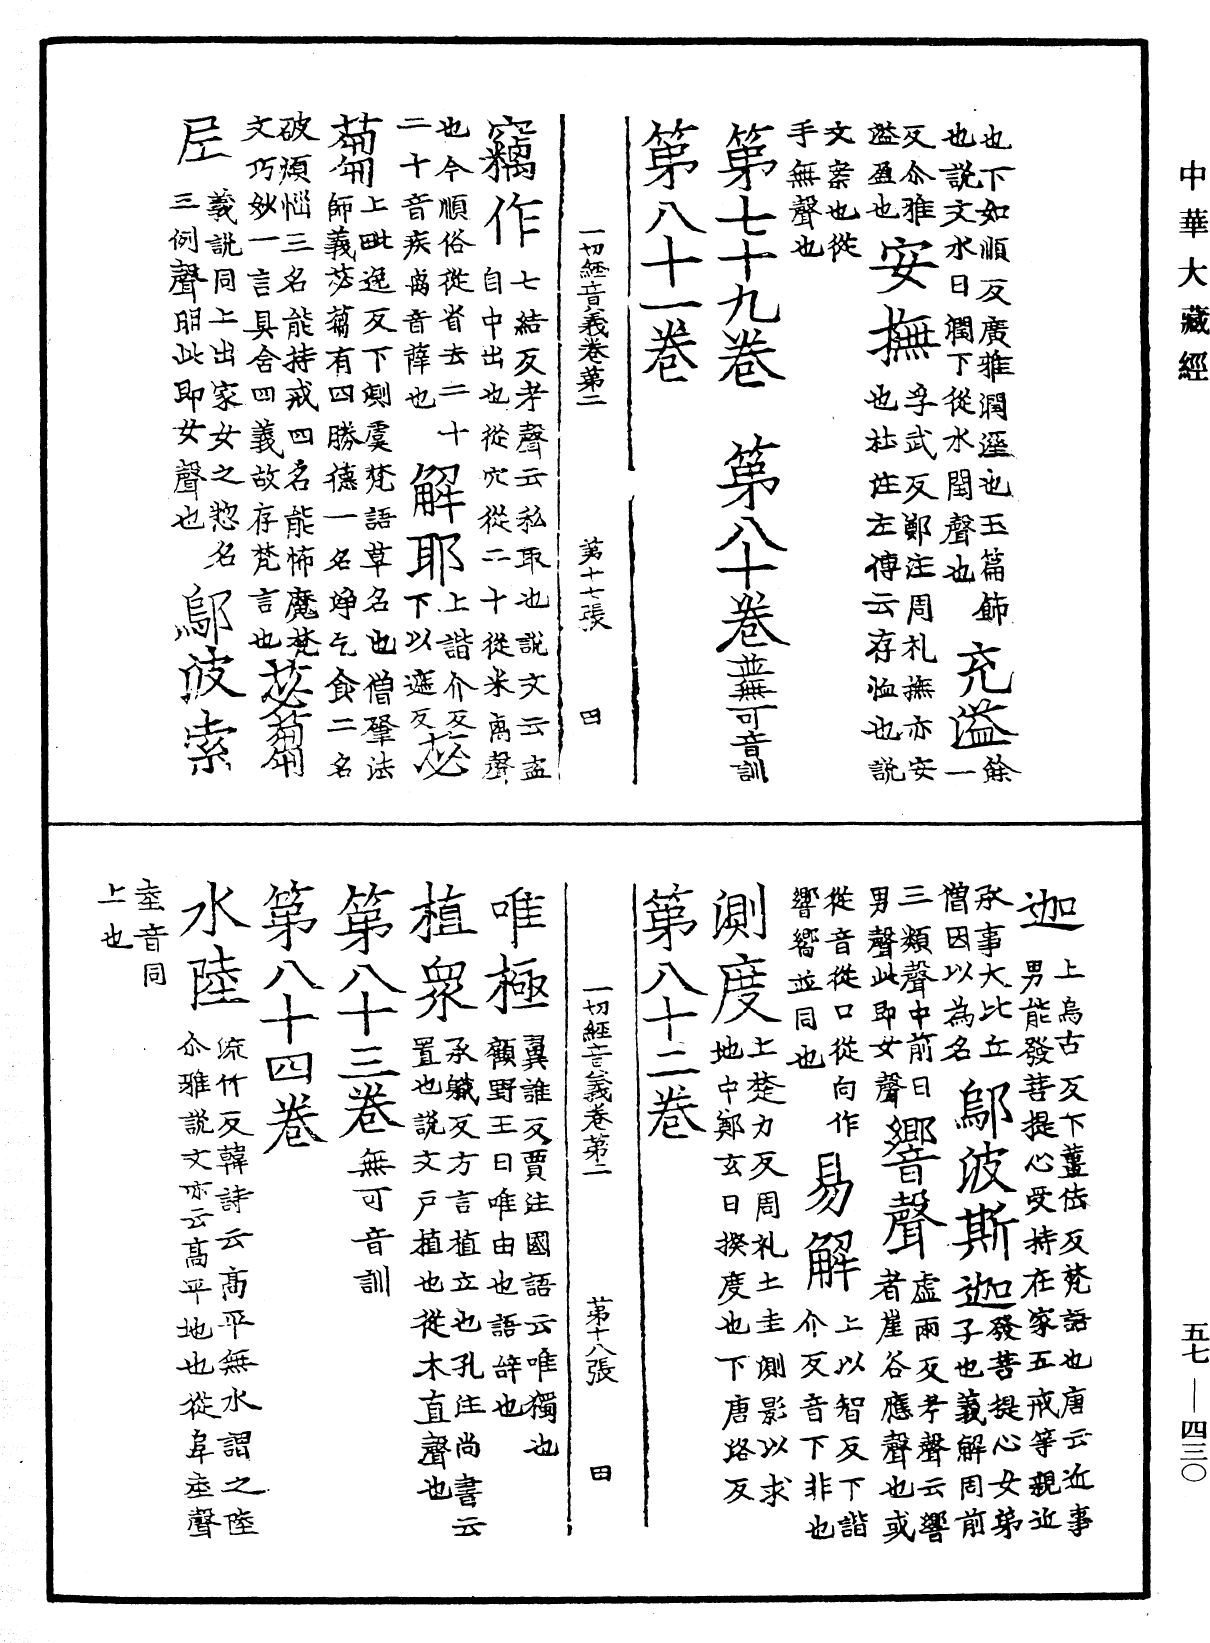 中華大藏經
也下如順反廣雅潤溼也玉篇飾
也說文水曰潤下從水閏聲也
充溢
餘一
反尒雅
溢盈也
安撫
孚武反鄭注周札撫亦安
也杜注左傳云存恤也說
文案也從
手無聲也
第七十九卷 第八十卷
並無可音訓
第八十一卷
一切經音義卷第二 第十七張 四
竊作
七結反考聲云私取也說文云盗
自中出也從穴從二十從米卨聲
也今順俗從省去二十
二十音疾卨音薛也
解耶
上諧介反
下以遮反
苾
蒭
上毗逸反下㓨虞梵語草名也僧肇法
師義苾蒭有四勝德一名淨乞食二名
破煩惱三名能持戒四名能怖魔梵
文巧妙一言具含四義故存梵言也
苾蒭
尼
義說同上出家女之惣名
三例聲明此即女聲也
鄔波索
迦
上烏古反下薑佉反梵語也唐云近事
男能發菩提心受持在家五戒等親近
承事大比丘
僧因以為名
鄔波斯迦
發菩提心女弟
子也義解同前
三類聲中前曰
男聲此即女聲
響聲
虛兩反考聲云響
者崖谷應聲也或
從音從口從向作
響嚮並同也
易解
上以智反下諧
介反音下非也
測度
上楚力反周礼土圭測影以求
地中鄭玄曰揆度也下唐路反
第八十二卷
一切經音義卷第二 第十八張 田
唯極
翼誰反賈注國語云唯獨也
顧野王曰唯由也語辝也
植眾
承軄反方言植立也孔注尚書云
置也說文戶植也從木直聲也
第八十三卷
無可音訓
第八十四卷
水陸
流竹反韓詩云高平無水謂之陸
尒雅說文亦云高平地也從阜坴聲
坴音同
上也
五七—四三〇